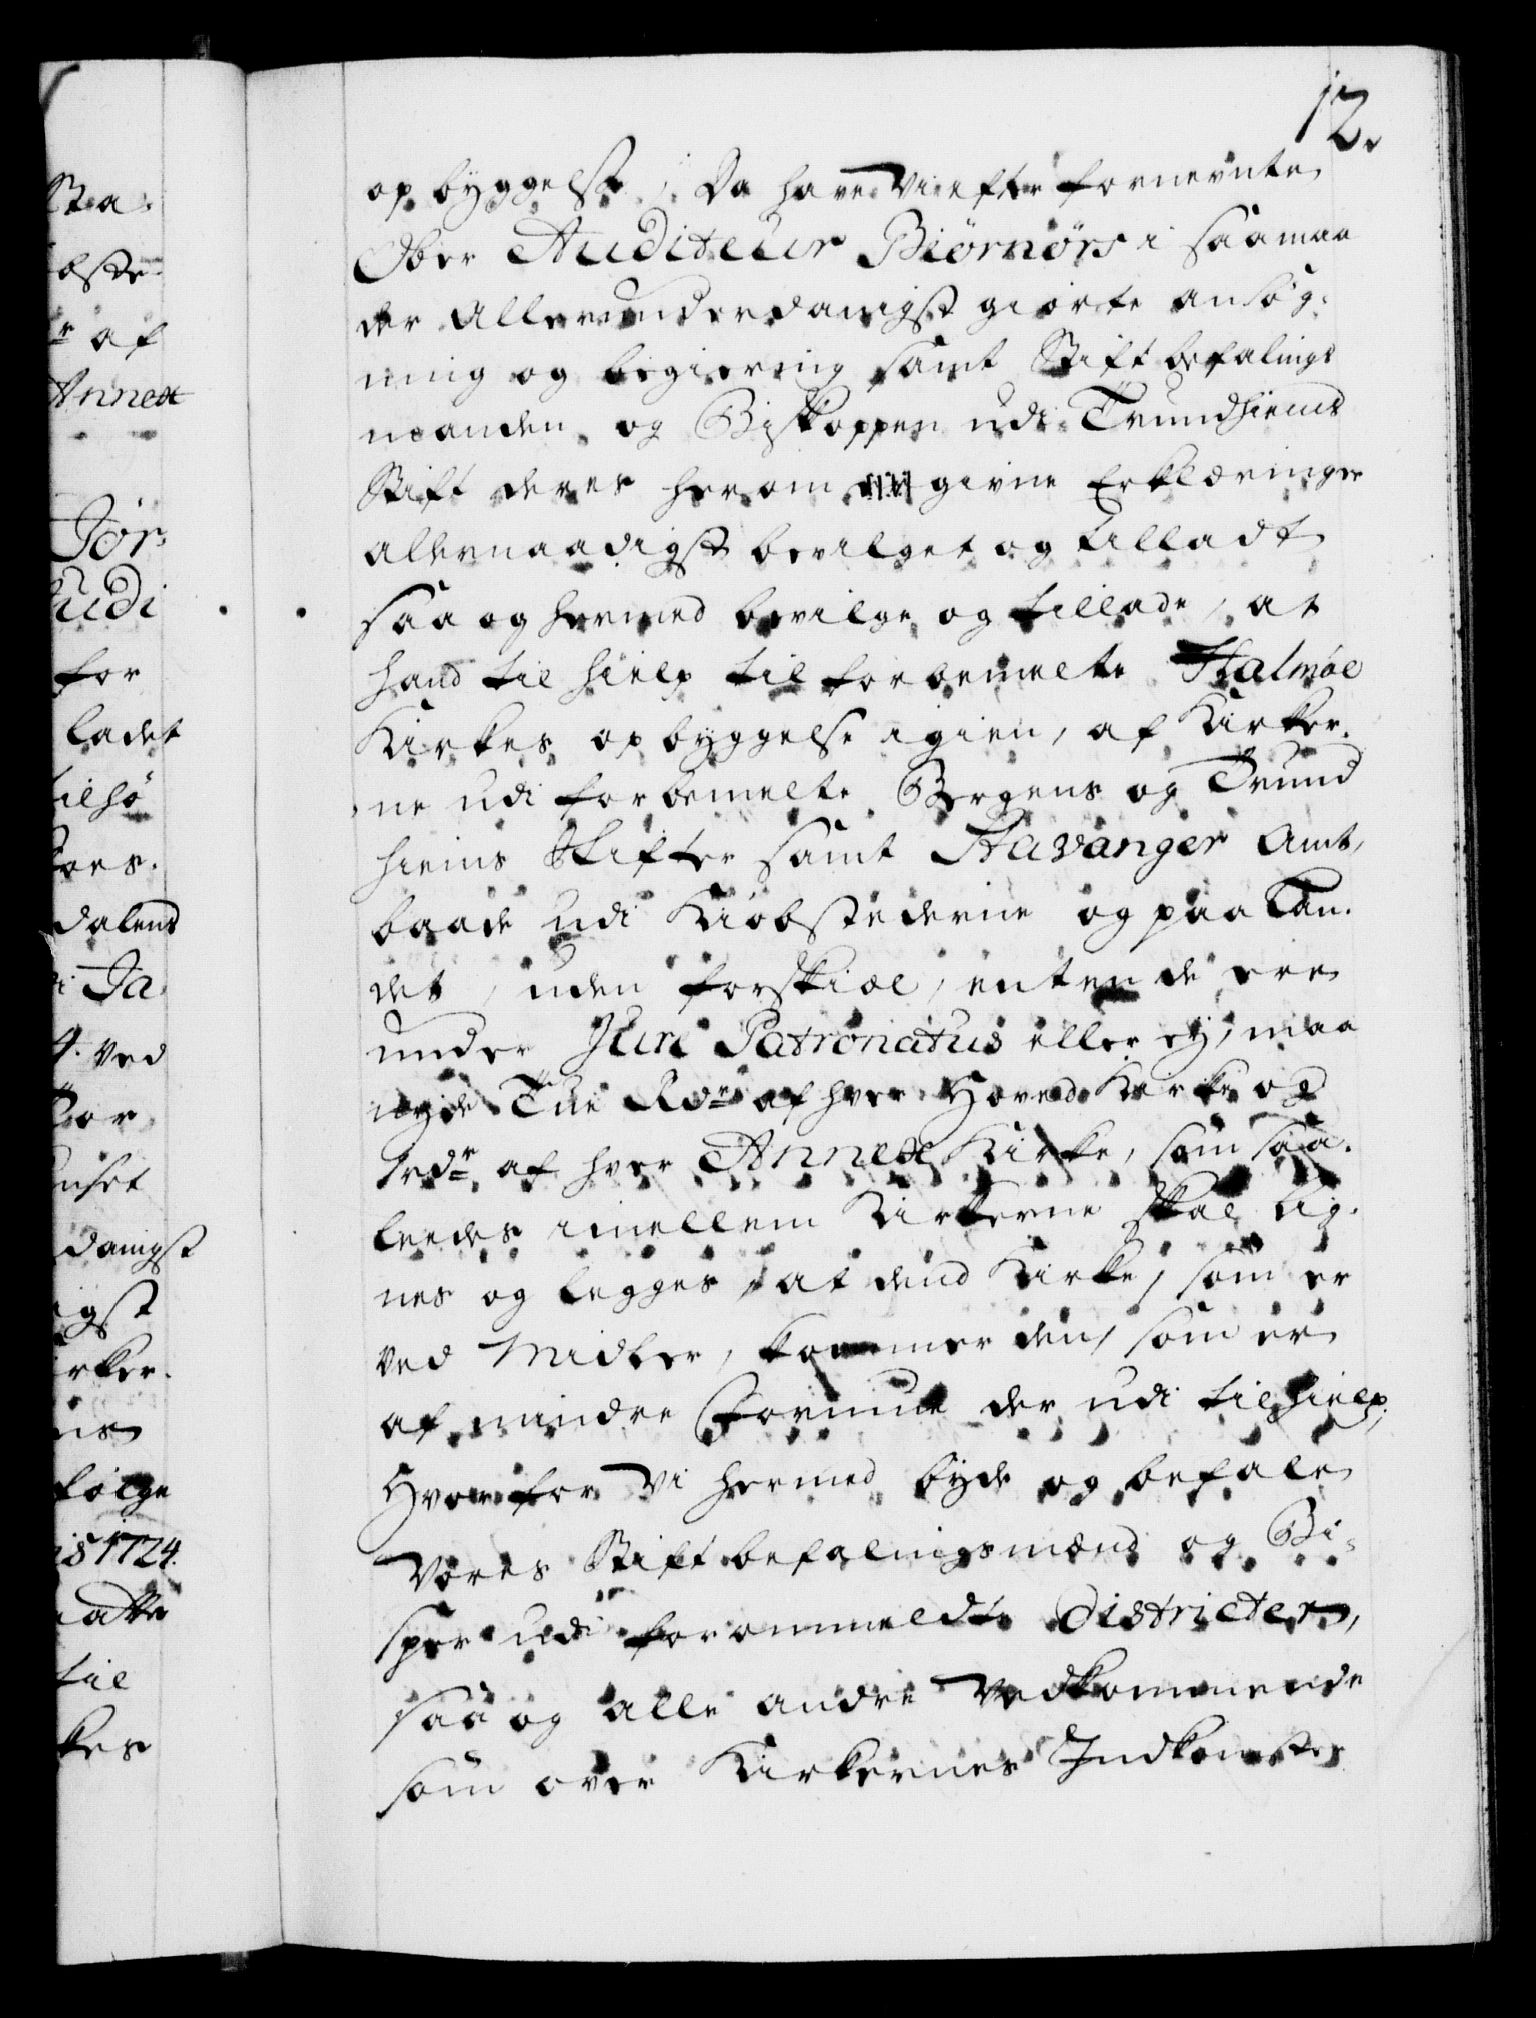 12.
opbyggelse, Da have Vi efter fornevnte
Ober Auditeur Biørnørs i saa maa
der Allerunderdanigst giorte ansøg:
ning og begiering samt Stiftbefalings
manden og Biskoppen udi Trundhiems
Stift deres herom givne Erklæringer
allernaadigst bevilget og tilladt
saa og hermed bevilge og tillade, at
hand til hielp til forbemelte Halmøe
Kirkes opbyggelse igien, af Kirker:
ne udi forbemelte Bergens og Trund
hiems Stifter samt Stavanger Amt,
baade udi Kiøbstederne og paa Lan:
det, uden forskiæl, enten de ere
under Jure Patronatus eller ey, maa
nyde Tue Rdr af hver Hoved Kirke og
1 rdr af hver Annex Kirke, som saa:
leedes imellem Kirkerne skal lig:
nes og legges, at dend Kirke, som er
ved Midler, kommer den, som er
af mindre Formue der udi til hielp,
Hvorfor Vi hermed byde og befale
Vores Stiftbefalingsmænd og Bi:
sper udi forommeldte Districter,
saa og alle andre Vedkommende
som over Kirkernes Indkomster
Sta:
bste:
r af
Annex
Jør:
udi
for
ladet
tilhø
dalens
i Ja
4. ved
danigst
igst
rker:
følge
is 1724.
til
kes